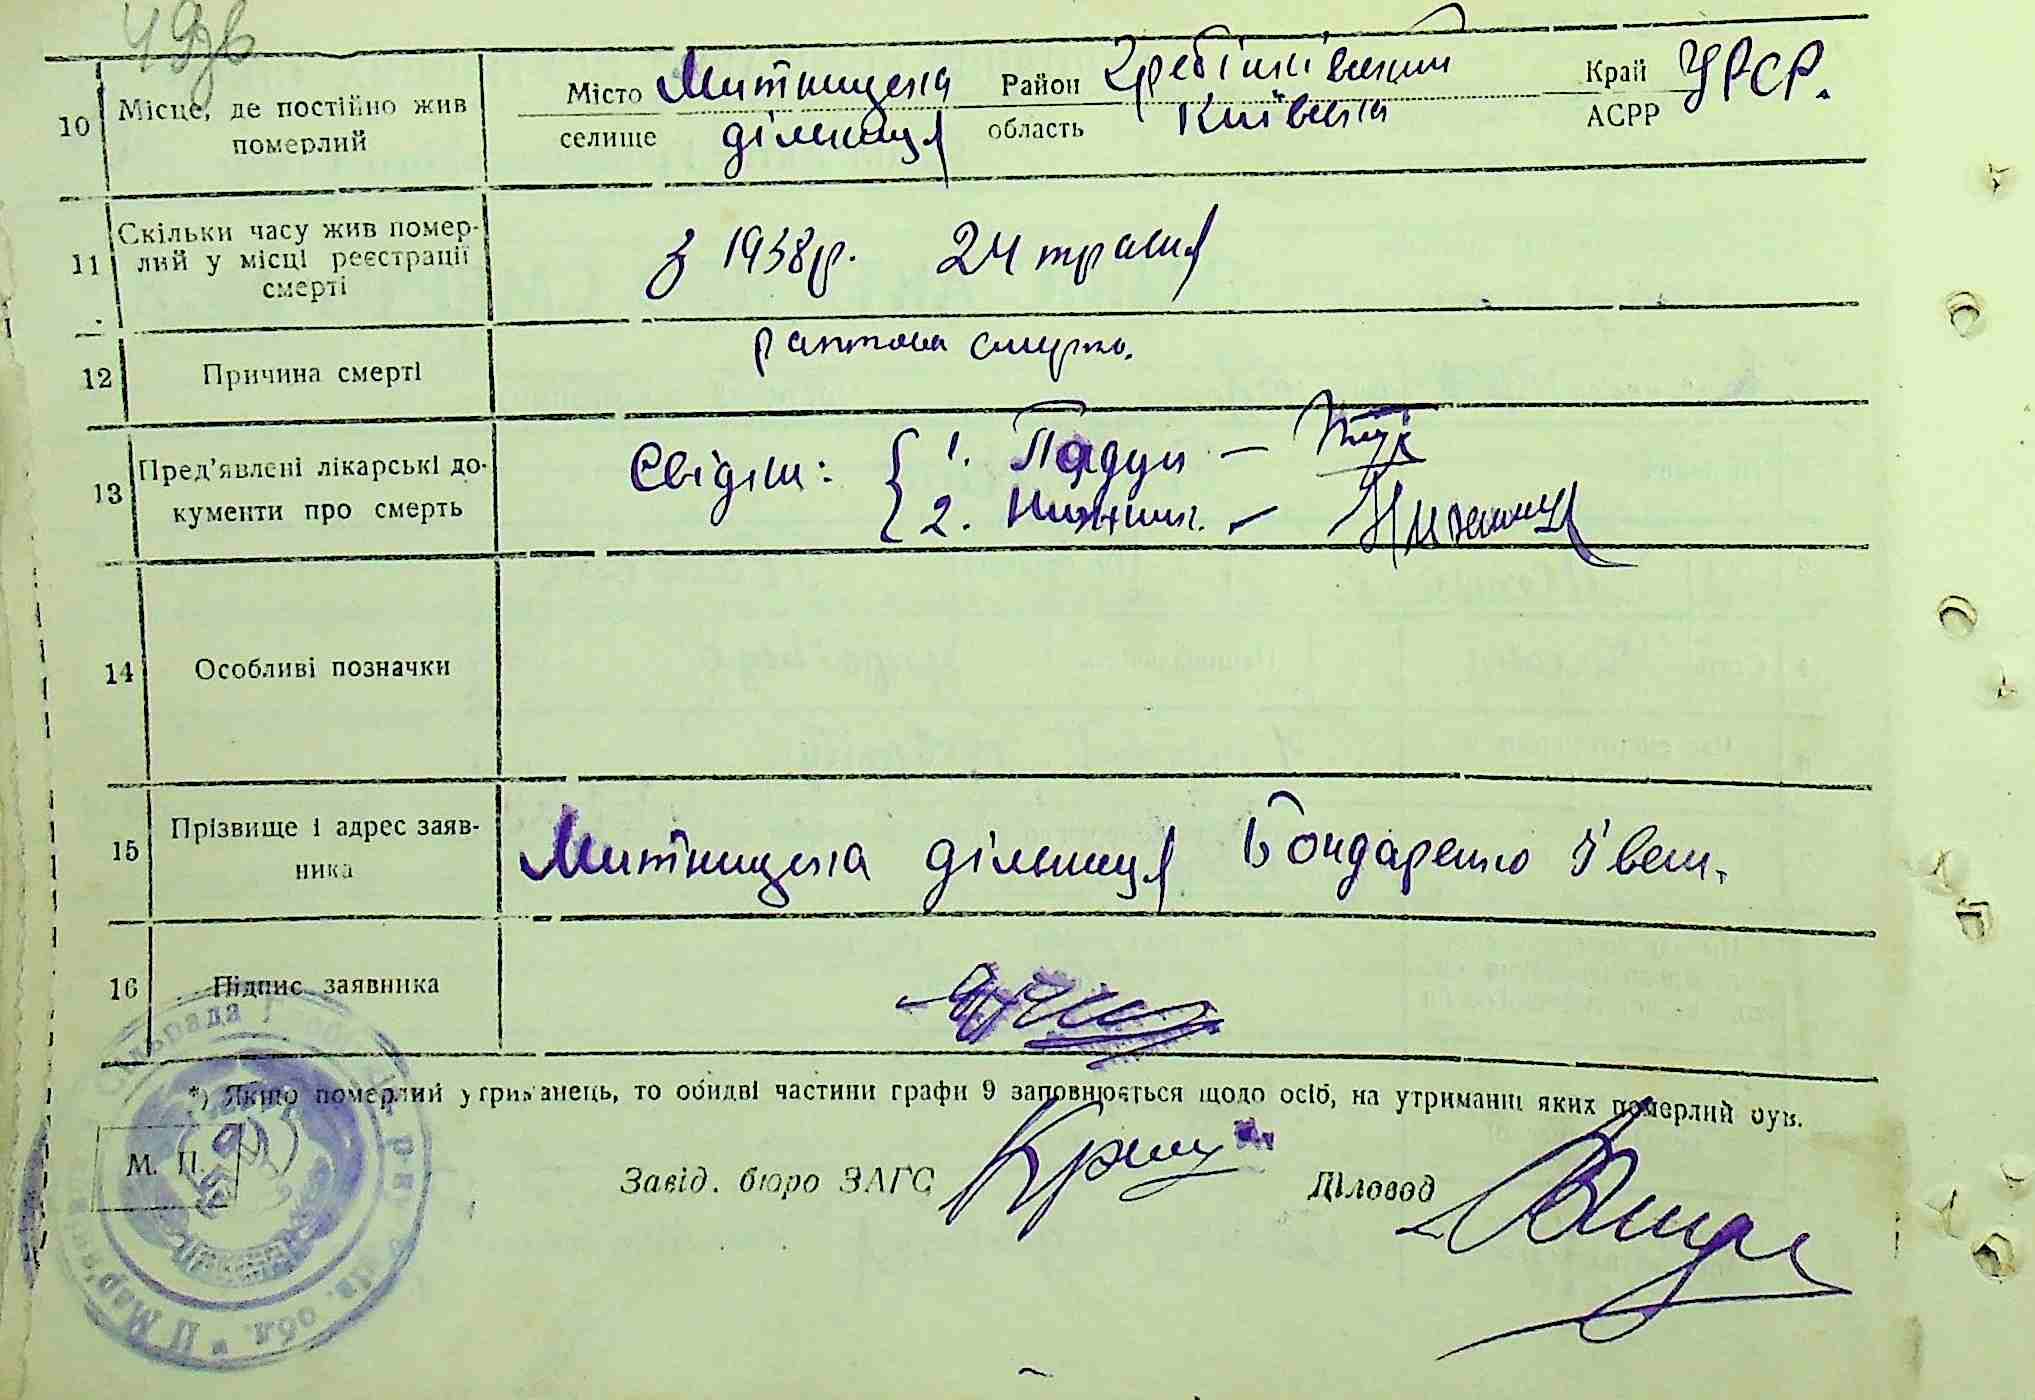 10 Місце, де постійно жив померлий
Місто селище Митницька дільниця
Район область Гребінківський Київська
Край АСРР УРСР.
11 Скільки часу жив помер-
лий у місці реєстрації
смерті
з 1938р. 24 травня
12 Причина смерті
раптова смерть.
13 Пред'явлені лікарські до-
кументи про смерть
Свідки: 1.
2.
14 Особливі позначки
15 Прізвище і адрес заяв-
ника
Митницька дільниця Бондаренко
16 Підпис заявника
*) Якщо померлий утриманець, то обидві частини графи 9 заповнюється щодо осіб, на утриманні яких померлий був.
М. П.
Завід. бюро ЗАГС
Діловод